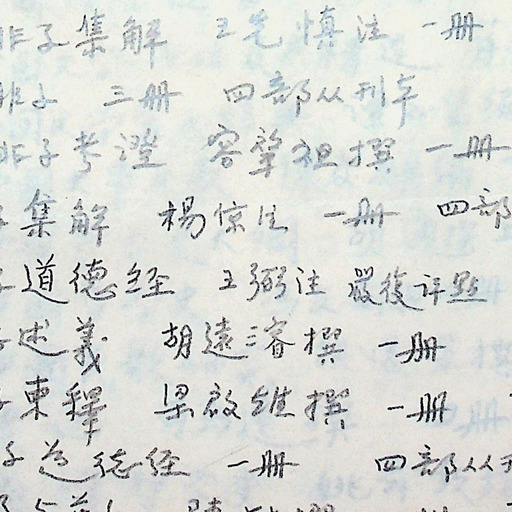 非子集解 王先慎注 一册
非子 三册 四部丛刊本
非子考澄 容肇祖撰 一册
子集解 杨倞注 一册 四部
子道德经 王弼注 严復评点
子述義 胡遠濬撰 一册
子柬釋 梁啟雄撰 一册
子道德经 一册 四部丛刊